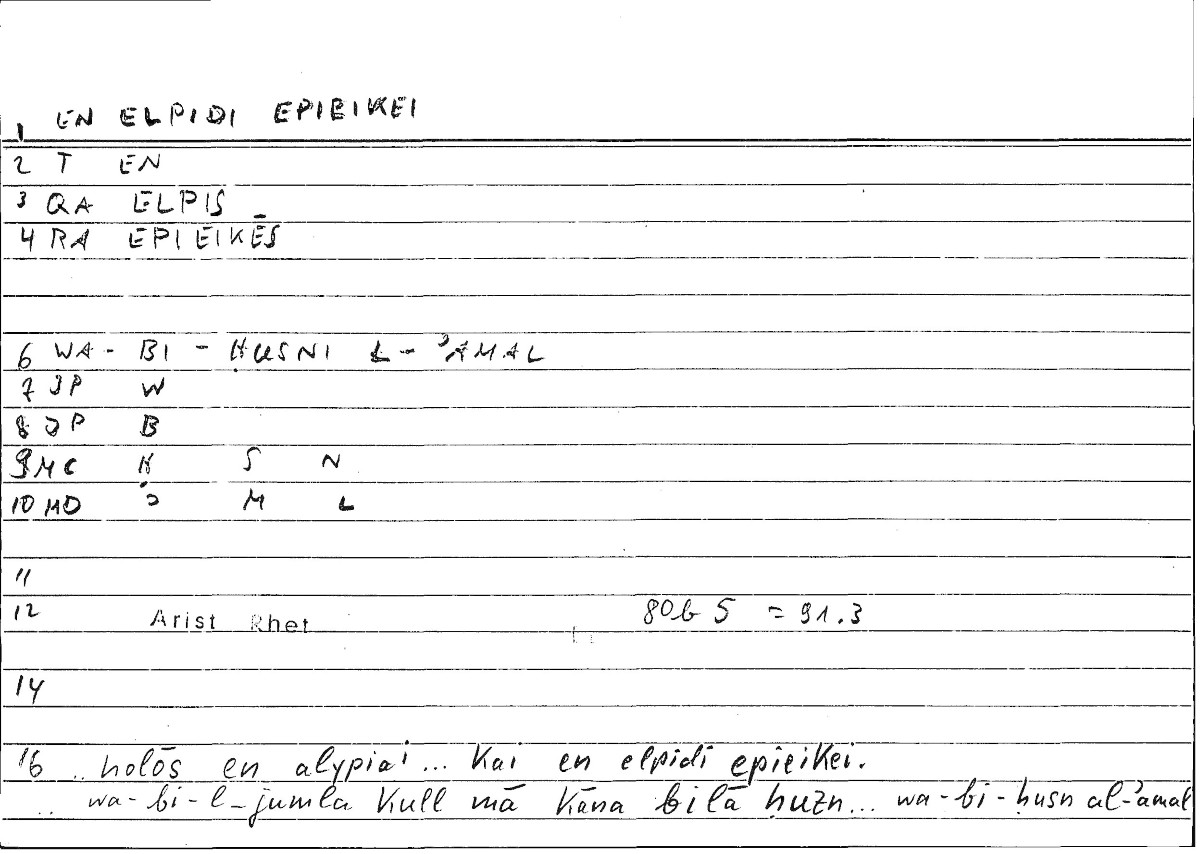 1 EN ELPIDI EPIEIKEI
2 T EN
3 QA ELPIS
4 RA EPIEIKĒS
6 WA-BI-ḤUSNI L-ʾAMAL
7 JP W
8 JP B
9 MC Ḥ S N
10 MD ʾ M L
11
12 Arist Rhet 80b 5 = 91.3
14
16 .. holōs en alypiai ... kai en elpidi epieikei.
.. wa-bi-l-jumla kull mā kāna bilā ḥuzn ... wa-bi-ḥusn al-ʾamal